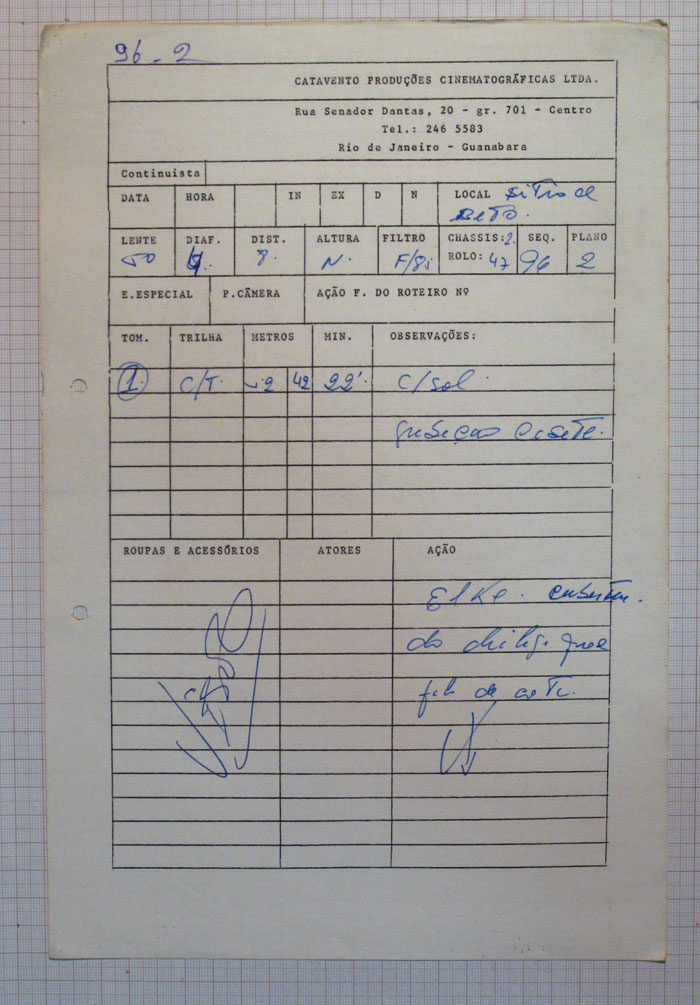 96-2
CATAVENTO PRODUÇÕES CINEMATOGRÁFICAS LTDA.
Rua Senador Dantas, 20 - gr. 701 - Centro
Tel.: 246 5583
Rio de Janeiro - Guanabara
Continuista
DATA HORA IN EX D N LOCAL Sitio de
Beto.
LENTE DIAF. DIST. ALTURA FILTRO CHASSIS: 2. SEQ. PLANO
50 8. N. F/85 ROLO: 47 96 2
E.ESPECIAL P.CÂMERA AÇÃO F. DO ROTEIRO Nº
TOM. TRILHA METROS MIN. OBSERVAÇÕES:
1. C/T. 42 22'. C/sol.
ROUPAS E ACESSÓRIOS ATORES AÇÃO
Elke.
do
de